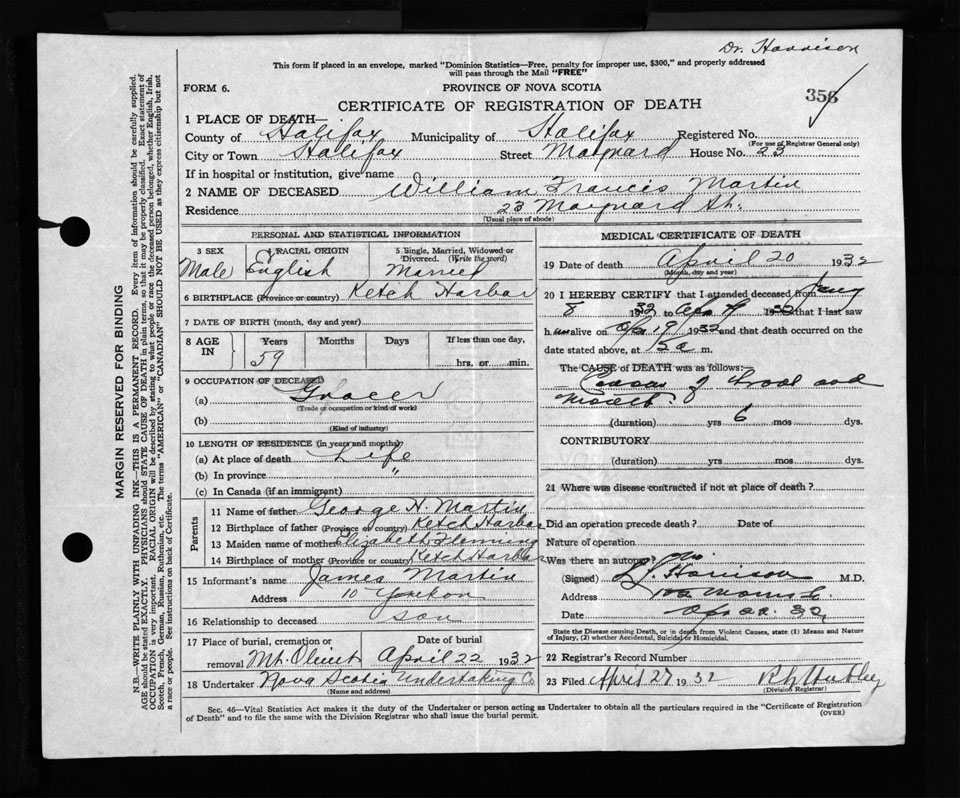 Dr. Harrison
This form if placed in an envelope, marked "Dominion Statistics—Free, penalty for improper use, $300," and properly addressed
will pass through the Mail "FREE"
FORM 6.
PROVINCE OF NOVA SCOTIA
356
CERTIFICATE OF REGISTRATION OF DEATH
1 PLACE OF DEATH—
County of Halifax Municipality of Halifax Registered No.
(For use of Registrar General only)
City or Town Halifax Street Maynard House No. 23
If in hospital or institution, give name
2 NAME OF DECEASED William Francis Martin
Residence 23 Maynard St.
(Usual place of abode)
PERSONAL AND STATISTICAL INFORMATION
3 SEX Male
4 RACIAL ORIGIN English
5 Single, Married, Widowed or Divorced. (Write the word) Married
6 BIRTHPLACE (Province or country) Ketch Harbor
7 DATE OF BIRTH (month, day and year)
8 AGE IN
Years Months Days If less than one day,
59 hrs. or min.
9 OCCUPATION OF DECEASED
(a) Grocer
(Trade or occupation or kind of work)
(b)
(Kind of industry)
10 LENGTH OF RESIDENCE (in years and months)
(a) At place of death Life
(b) In province "
(c) In Canada (if an immigrant)
Parents
11 Name of father George H. Martin
12 Birthplace of father (Province or country) Ketch Harbor
13 Maiden name of mother Elizabeth Fleming
14 Birthplace of mother (Province or country) Ketch Harbor
15 Informant's name James Martin
Address 10
16 Relationship to deceased son
17 Place of burial, cremation or removal Mt. Olivet
Date of burial April 22 1932
18 Undertaker Nova Scotia Undertaking Co
(Name and address)
MEDICAL CERTIFICATE OF DEATH
19 Date of death April 20 1932
(Month, day and year)
20 I HEREBY CERTIFY that I attended deceased from Jany
8 1932 to Ap 19 1932 that I last saw
h im alive on Ap 19 1932 and that death occurred on the
date stated above, at m.
The CAUSE OF DEATH was as follows:
of and
(duration) yrs 6 mos dys.
CONTRIBUTORY
(duration) yrs mos dys.
21 Where was disease contracted if not at place of death?
Did an operation precede death? Date of
Nature of operation
Was there an autopsy? No
(Signed) Harrison M.D.
Address Morris St.
Date Ap 22. 32
State the Disease causing Death, or in death from Violent Causes, state (1) Means and Nature
of Injury, (2) whether Accidental, Suicidal or Homicidal.
22 Registrar's Record Number
23 Filed April 27 1932
(Division Registrar)
Sec. 46—Vital Statistics Act makes it the duty of the Undertaker or person acting as Undertaker to obtain all the particulars required in the "Certificate of Registration
of Death" and to file the same with the Division Registrar who shall issue the burial permit.
(OVER)
MARGIN RESERVED FOR BINDING
N.B.—WRITE PLAINLY WITH UNFADING INK—THIS IS A PERMANENT RECORD. Every item of information should be carefully supplied.
AGE should be stated EXACTLY. PHYSICIANS should STATE CAUSE OF DEATH in plain terms, so that it may be properly classified. Exact statement of
OCCUPATION is very important. RACIAL ORIGIN will be described by stating to what people or race the deceased person belonged, whether English, Irish,
Scotch, French, German, Russian, Ruthenian, etc. The terms "AMERICAN" or "CANADIAN" SHOULD NOT BE USED as they express citizenship but not
a race or people. See instructions on back of Certificate.